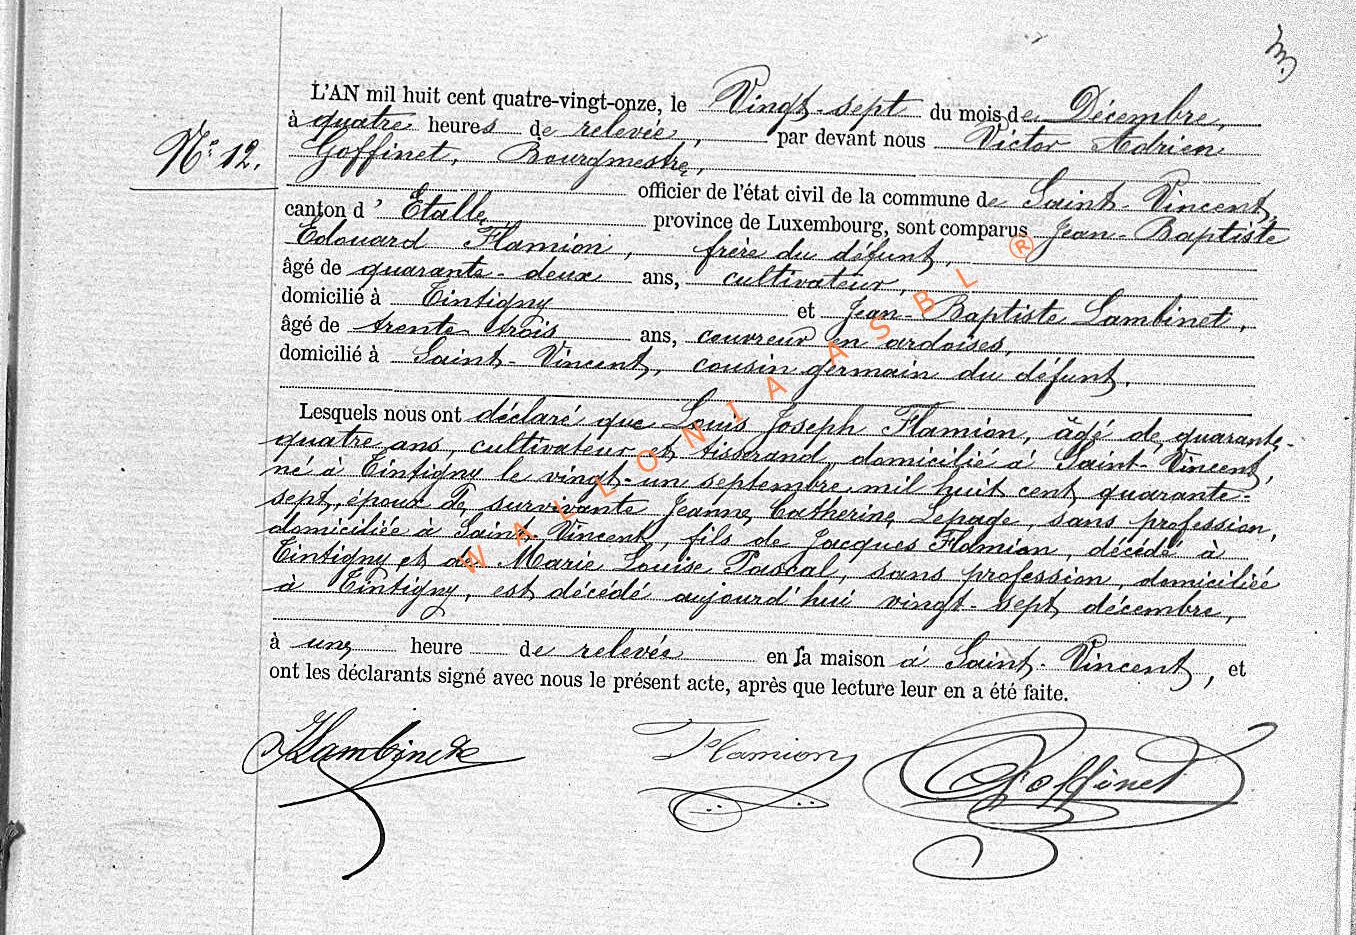 L'AN mil huit cent quatre-vingt-onze, le Vingt-sept du mois de Décembre,
à quatre heures de relevée, par devant nous Victor Adrien
N° 12.
Goffinet, Bourgmestre,
officier de l'état civil de la commune de Saint-Vincent,
canton d'Etalle, province de Luxembourg, sont comparus Jean-Baptiste
Edouard Flamion, frère du défunt,
âgé de quarante-deux ans, cultivateur,
domicilié à Tintigny et Jean-Baptiste Lambinet,
âgé de trente trois ans, couvreur en ardoises,
domicilié à Saint-Vincent, cousin germain du défunt.
Lesquels nous ont déclaré que Louis Joseph Flamion, âgé de quarante-
quatre ans, cultivateur et tisserand, domicilié à Saint-Vincent,
né à Tintigny le vingt-un septembre mil huit cent quarante-
sept, époux de survivante Jeanne Catherine Lepage, sans profession,
domiciliée à Saint-Vincent, fils de Jacques Flamion, décédé à
Tintigny et de Marie Louise Pascal, sans profession, domiciliée
à Tintigny, est décédé aujourd'hui vingt-sept décembre,
à une heure de relevée en sa maison à Saint-Vincent, et
ont les déclarants signé avec nous le présent acte, après que lecture leur en a été faite.
Lambinet Flamion Goffinet
WALLONIA ASBL ®